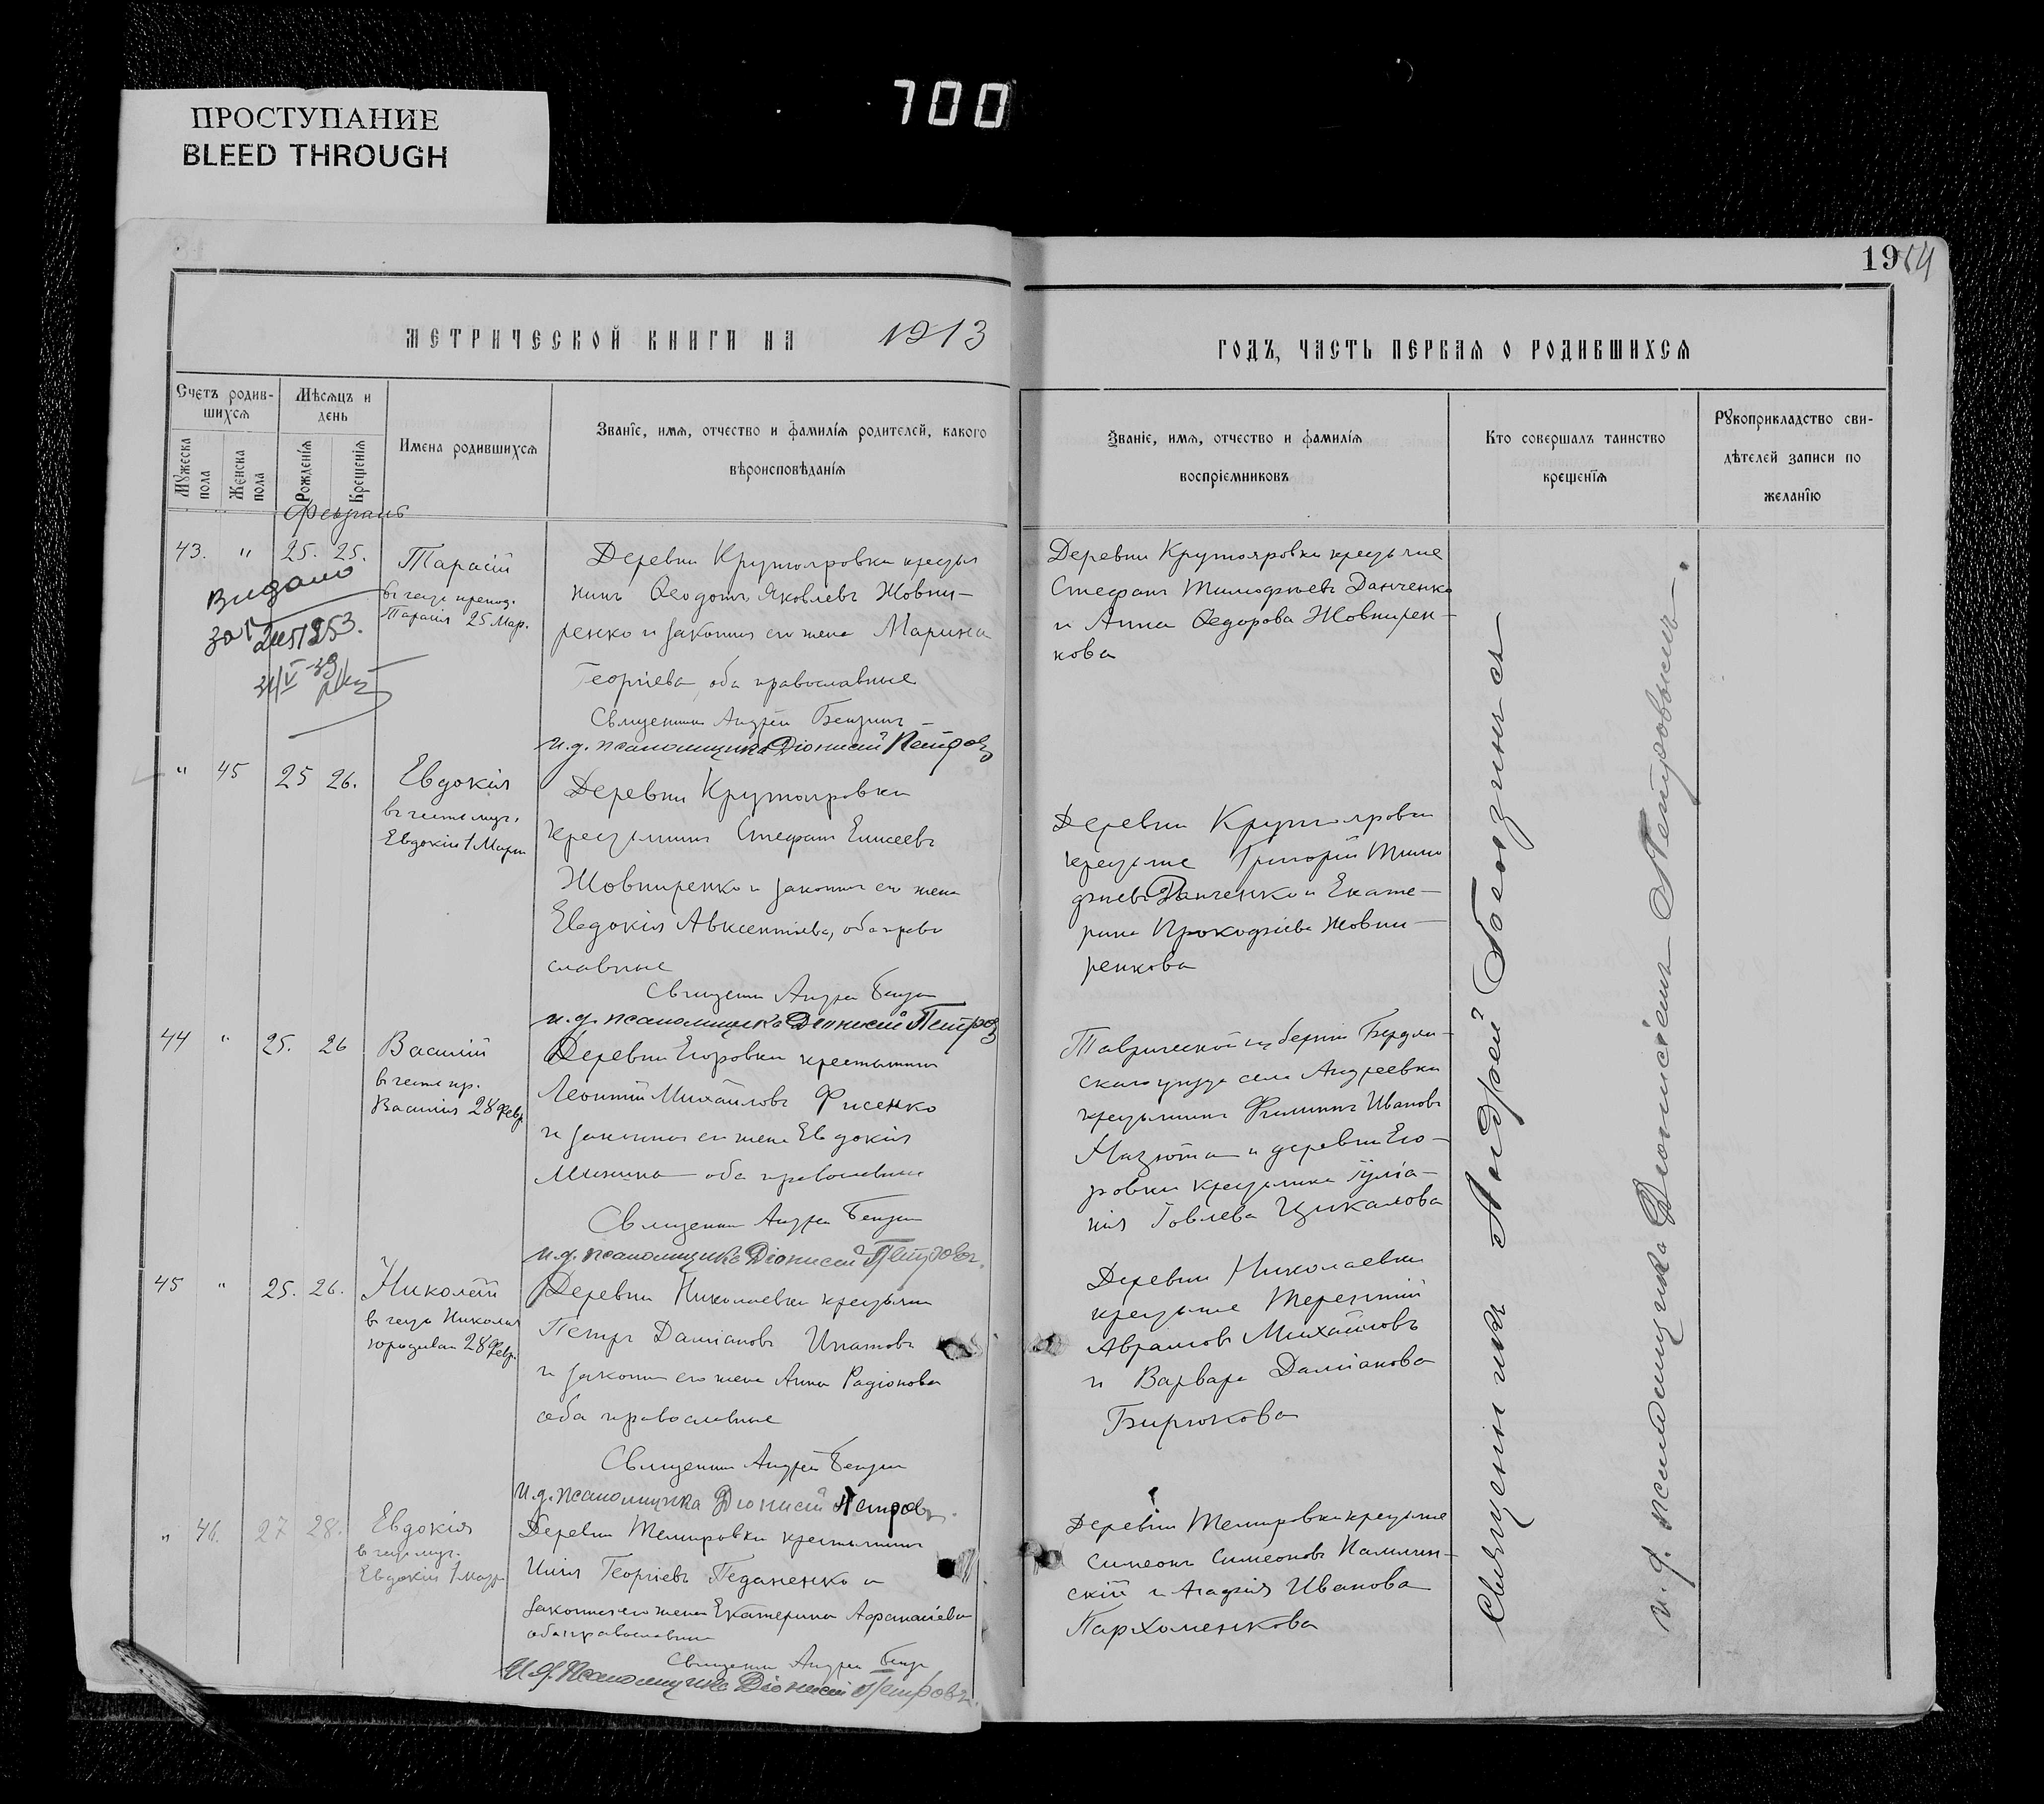 700
ПРОСТУПАНИЕ
BLEED THROUGH
19
МЕТРИЧЕСКОЙ КНИГИ НА 1913
ГОДЪ, ЧАСТЬ ПЕРВАЯ О РОДИВШИХСЯ
Счетъ родив-
шихся
Мужеска
пола
Женска
пола
Мѣсяцъ и
день
Рожденія
Крещенія
Имена родившихся
Званіе, имя, отчество и фамилія родителей, какого
вѣроисповѣданія
Званіе, имя, отчество и фамилія
воспріемниковъ
Кто совершалъ таинство
крещенія
Рукоприкладство сви-
дѣтелей записи по
желанію
Февраль
43. " 25. 25.
Тарасій
Тарасія 25 Мар.
Видано
Деревни Крутояровки
нинъ Ѳеодотъ Яковлевъ Жовни-
ренко и законная его жена Марина
Георгіева, оба православные
Священникъ Андрей
и.д. псаломщика Діонисій Петровъ
Деревни Крутояровки
Стефанъ Тимофѣевъ Данченко
и Анна Ѳедорова Жовнирен-
кова
" 45 25 26.
Евдокія
въ честь муч.
Евдокіи 1 Мар
Деревни Крутояровки
Стефанъ Елисеевъ
Жовниренко и законная его жена
Евдокія Авксентіева, оба право
славные
Священникъ Андрей
и.д. псаломщика Діонисій Петров
Деревни Крутояровки
Григорій Тимо
фѣевъ Данченко и Екате-
рина Прокофіева Жовни-
ренкова
44 " 25. 26
Василій
въ честь пр.
Василія 28 Февр.
Деревни Егоровки крестьянинъ
Леонтій Михайловъ Фисенко
и законная его жена Евдокія
Минина оба православные
Священникъ Андрей
и.д. псаломщика Діонисій Петровъ.
Таврической губерніи Бердян-
скаго уѣзда села Андреевки
Филиппъ Ивановъ
Мазюта и деревни Его-
ровки Іуліа-
нія Іовлева Цикалова
45 " 25. 26.
Николай
въ честь Николая
юродиваго 28 Февр.
Деревни Николаевки
Петръ Даміановъ Ипатовъ
и законная его жена Анна Радіонова
оба православные
Священникъ Андрей
и.д. псаломщика Діонисій Петровъ.
Деревни Николаевки
Терентій
Авраамовъ Михайловъ
и Варвара Даміанова
Бирюкова
" 46. 27 28.
Евдокія
въ честь муч.
Евдокіи 1 мар
Деревни Темировки крестьянинъ
Илія Георгіевъ Педаненко и
законная его жена Екатерина Афанасіева
оба православные
Священникъ Андрей
и.д. псаломщика Діонисій Петровъ.
Деревни Темировки
Симеонъ Симеоновъ
скій и Агафія Иванова
Пархоменкова
Священникъ Андрей
и.д. псаломщика Діонисій Петровъ